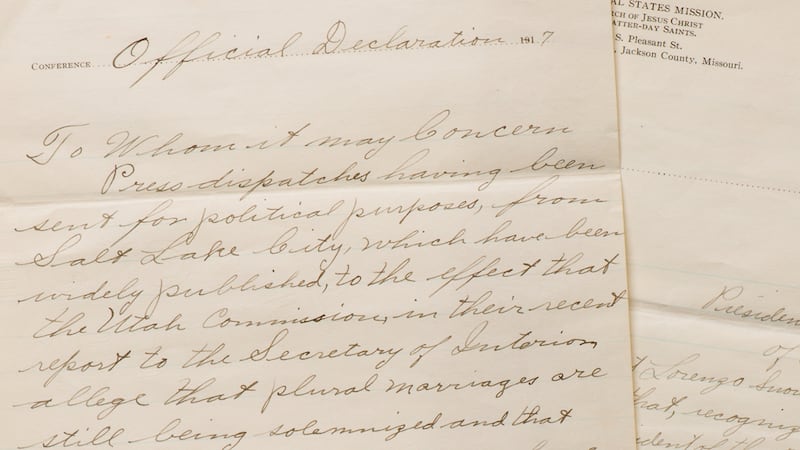 Conference Official Declaration 1917
To Whom it may Concern
Press dispatches having been
sent for political purposes, from
Salt Lake City, which have been
widely published, to the effect that
the Utah Commission, in their recent
report to the Secretary of Interior
allege that plural marriages are
still being solemnized and that
AL STATES MISSION.
RCH OF JESUS CHRIST
ATTER-DAY SAINTS.
S. Pleasant St.
, Jackson County, Missouri.
Presiden
of
t Lorenzo Snow
that, recogniz